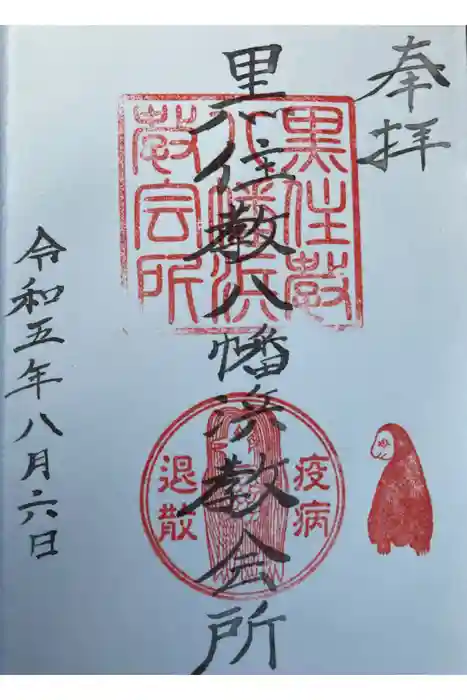 奉拝
黒住教八幡浜教会所
黒住教
八幡浜
教会所
疫病
退散
令和五年八月六日